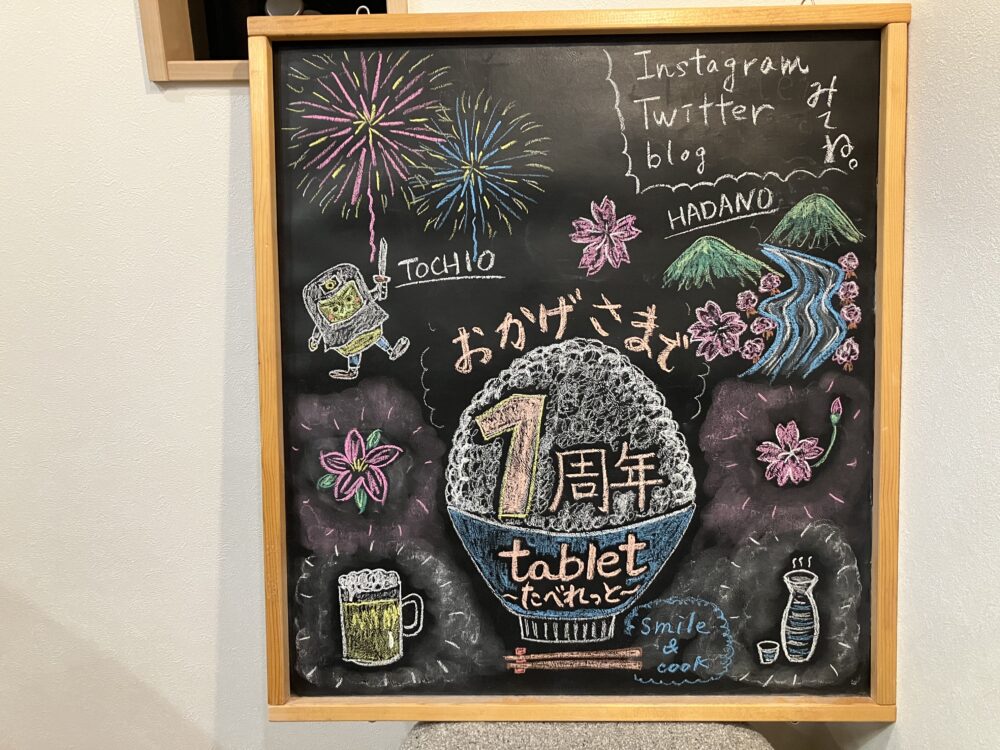 Instagram
Twitter
blog
みてね。
HADANO
TOCHIO
おかげさまで
1周年
tablet
~たべれっと~
Smile
&
cook